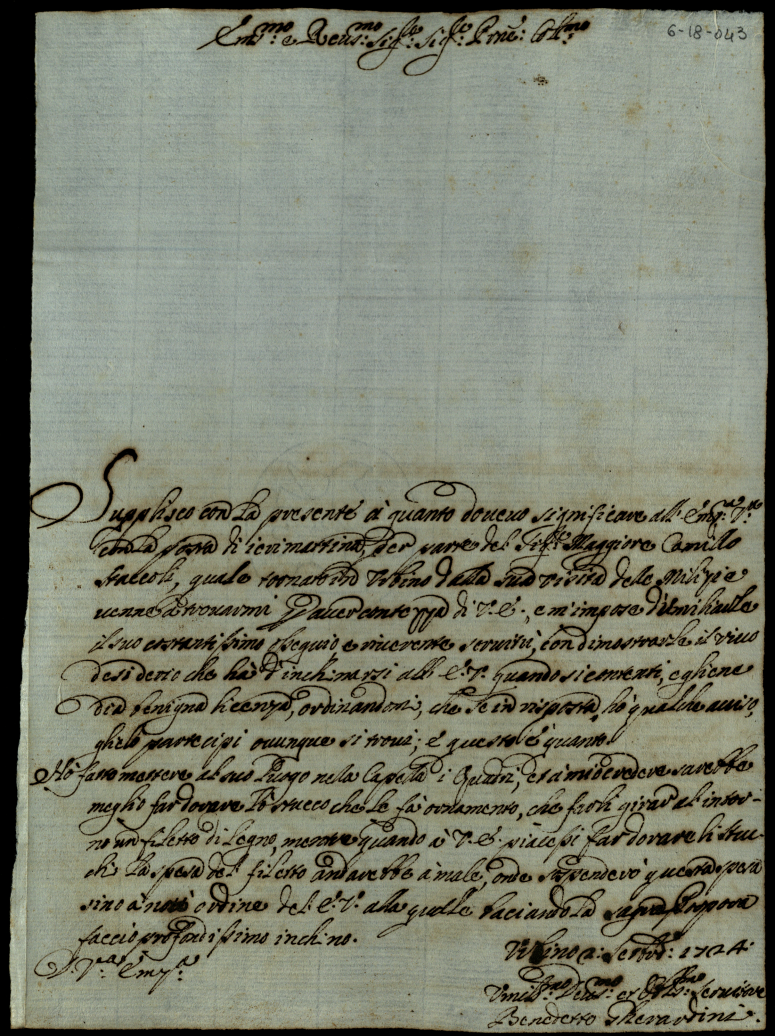 6-18-043
Em.mo e Reu.mo Sig.re Sig.re P.rone Col.mo
Supplisco con la presente à quanto doueuo significare all' Em.za V.ra
con la posta di ieri mattina, per parte del Sig.r Maggiore Camillo
Staccoli, quale tornato in Vrbino dalla sua visita delle Milizie
uenne à trouarmi p auer contezza di V.E., e m'impose di umiliarle
il suo costantissimo ossequio e riuerente seruitù, con dimostrarle il viuo
desiderio che hà d'inchinarsi all' E.V. quando si contenti, e gliene
dia benigna licenza, ordinandomi, che se in risposta hò qualche auuiso,
glielo partecipi ouunque si troui; e questo è quanto.
Hò fatto mettere al suo luogo nella Capella i Quadri, et à mio credere sarebbe
meglio far dorare lo stucco che le fà ornamento, che farli girar al intor-
no un filetto di legno, mentre quando à V.E. piacessi far dorare li stuc-
chi la spesa del filetto andarebbe à male, onde sospenderò questa spesa
sino à nuouo ordine del E.V. alla quale baciando la sagra Porpora
faccio profondissimo inchino.
D. V.ra Em.za
Vrbino 2: Settbr: 1724.
Vmiliss.mo Deu.mo et Obl.mo Seruitore
Benedetto Gherardini.